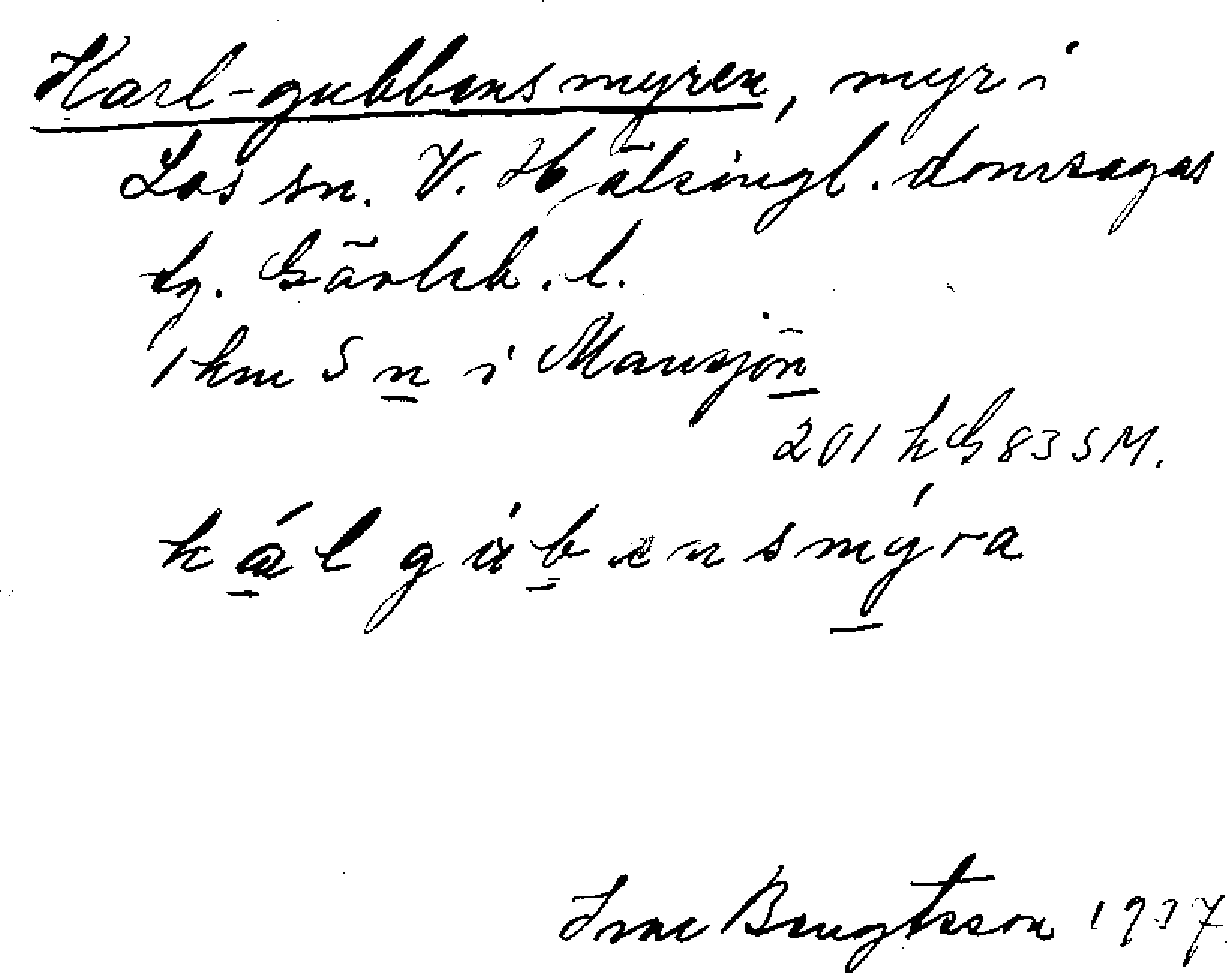 Karl-gubbensmyren, myr i
Los sn. V. Hälsingl. domsagas
tg. Gävleb. l.
1 km S n i Mansjön
201 h G 83 SM.
kál gúbensmýra
Bengtsson 1937